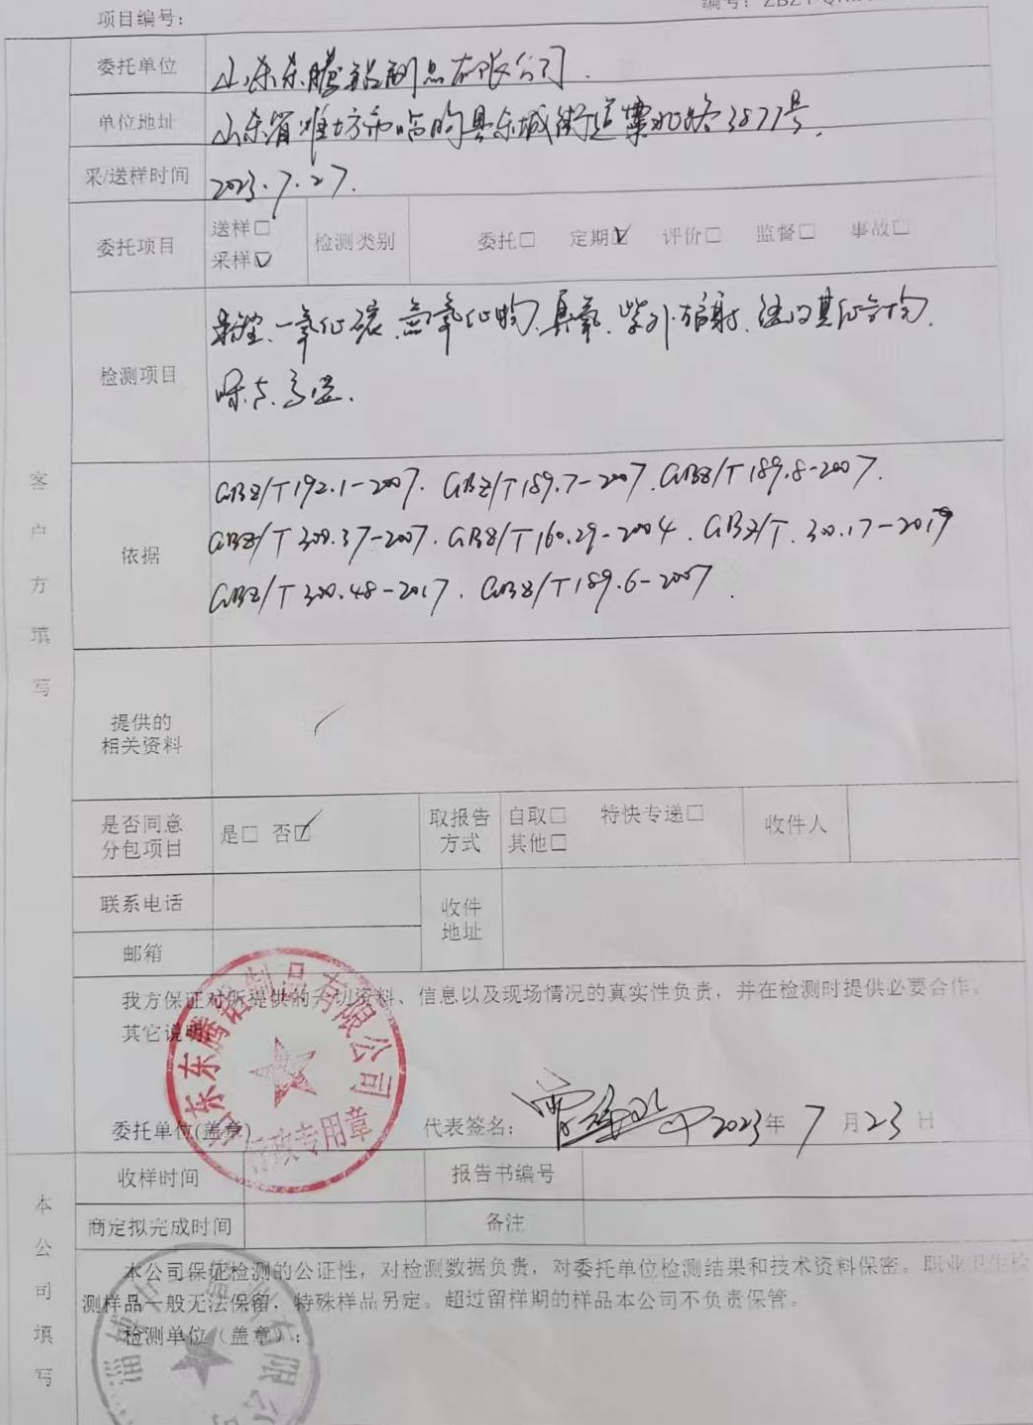 项目编号：
编号：ZBZY-QR
委托单位 山东东腾铝制品有限公司.
单位地址 山东省潍坊市临朐县东城街道 路3877号.
采/送样时间 2023.7.27.
委托项目 送样□ 采样☑ 检测类别 委托□ 定期☑ 评价□ 监督□ 事故□
检测项目
粉尘、一氧化碳、氮氧化物、臭氧、紫外辐射、锰及其化合物、
噪声、高温.
依据
GBZ/T192.1-2007. GBZ/T189.7-2007. GBZ/T189.8-2007.
GBZ/T 300.37-2007. GBZ/T160.29-2004. GBZ/T.300.17-2017
GBZ/T300.48-2017. GBZ/T189.6-2007.
提供的
相关资料
是否同意
分包项目
是□ 否☑
取报告
方式
自取□ 特快专递□
其他□
收件人
联系电话
邮箱
收件
地址
我方保证对所提供的一切资料、信息以及现场情况的真实性负责，并在检测时提供必要合作。
其它说明：
山东东腾铝制品有限公司
行政专用章
委托单位(盖章) 代表签名： 2023年 7月23日
收样时间 报告书编号
商定拟完成时间 备注
本公司保证检测的公证性，对检测数据负责，对委托单位检测结果和技术资料保密。职业卫生检
测样品一般无法保留，特殊样品另定。超过留样期的样品本公司不负责保管。
检测单位（盖章）：
客户方填写
本公司填写